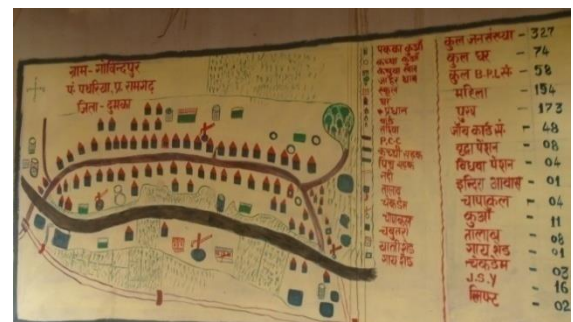 ग्राम- गोविन्दपुर
पं. पथरिया, प्र. रामगढ़
जिला- दुमका
पक्का कुआँ
कच्चा कुआँ
स्कूल
घर
प्रधान
P.C.C
कच्ची सड़क
नदी
तालाब
चेकडैम
चबुतरा
गाय शेड
कुल जनसंख्या - 327
कुल घर - 74
कुल B.P.L सं. - 58
महिला - 154
पुरुष - 173
जॉब कार्ड सं. - 48
वृद्धा पेंशन - 08
विधवा पेंशन - 04
इन्दिरा आवास - 01
चापाकल - 04
कुआँ - 11
तालाब - 08
गाय शेड - 01
चेकडैम - 03
J.S.Y - 16
लिफ्ट - 02